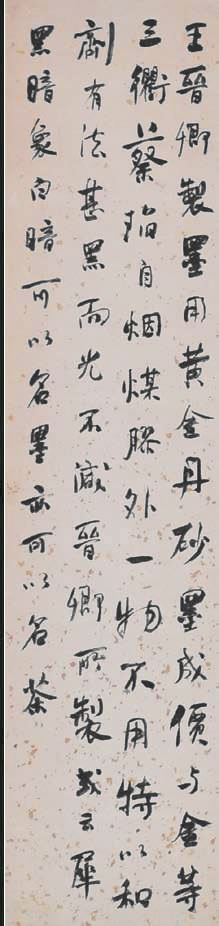 王晉卿製墨用黃金丹砂墨成價与金等
三衢蔡瑫自烟煤膠外一物不用特以和
劑有法甚黑而光不減晉卿所製或云犀
黑暗象白暗可以名墨亦可以名茶